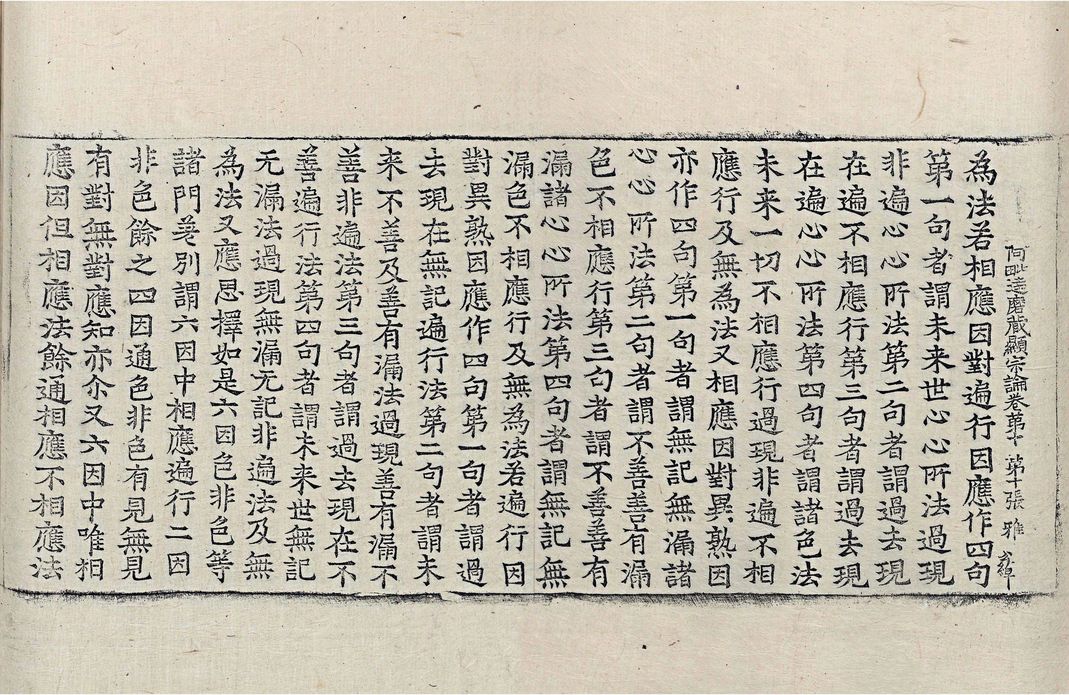 阿毗達磨藏顯宗論卷第十 第十張 雅
為法若相應因對遍行因應作四句
第一句者謂未来世心心所法過現
非遍心心所法第二句者謂過去現
在遍不相應行第三句者謂過去現
在遍心心所法第四句者謂諸色法
未来一切不相應行過現非遍不相
應行及無為法又相應因對異熟因
亦作四句第一句者謂無記無漏諸
心心所法第二句者謂不善善有漏
色不相應行第三句者謂不善善有
漏諸心心所法第四句者謂無記無
漏色不相應行及無為法若遍行因
對異熟因應作四句第一句者謂過
去現在無記遍行法第二句者謂未
来不善及善有漏法過現善有漏不
善非遍法第三句者謂過去現在不
善遍行法第四句者謂未来世無記
无漏法過現無漏无記非遍法及無
為法又應思擇如是六因色非色等
諸門差別謂六因中相應遍行二因
非色餘之四因通色非色有見無見
有對無對應知亦尒又六因中唯相
應因但相應法餘通相應不相應法